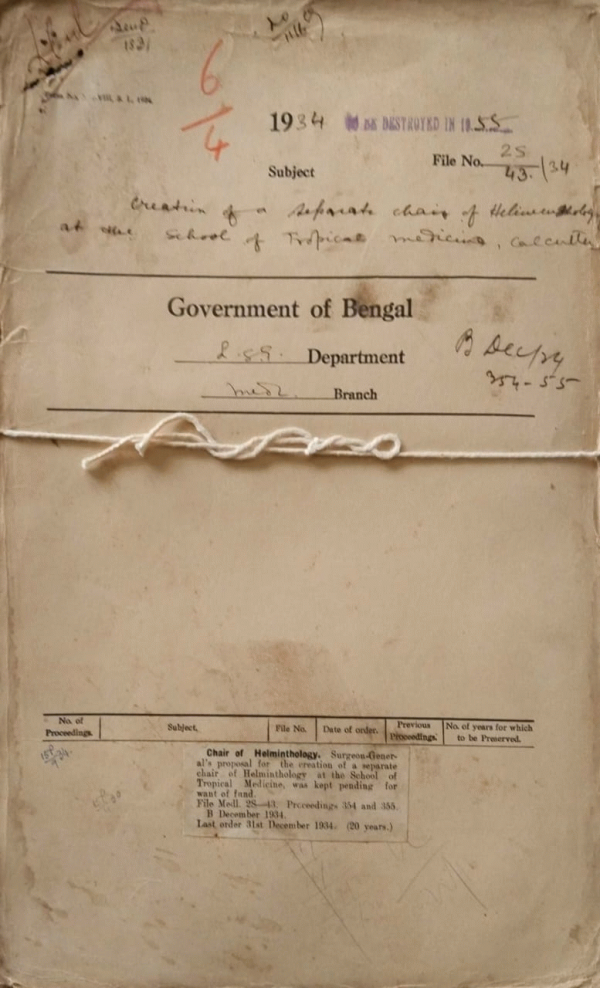 1934 TO BE DESTROYED IN 1955
File No. 2S/43. /34
Subject
Creation of a separate chair of Helminthology
at the School of Tropical medicine, Calcutta
Government of Bengal
L.S.G. Department
Medl. Branch
B Dec/34
354-55
6/4
No. of Proceedings. Subject. File No. Date of order. Previous Proceedings. No. of years for which to be Preserved.
Chair of Helminthology. Surgeon-Gener-
al's proposal for the creation of a separate
chair of Helminthology at the School of
Tropical Medicine, was kept pending for
want of fund.
File Medl. 2S—43. Proceedings 354 and 355.
B December 1934.
Last order 31st December 1934. (20 years.)